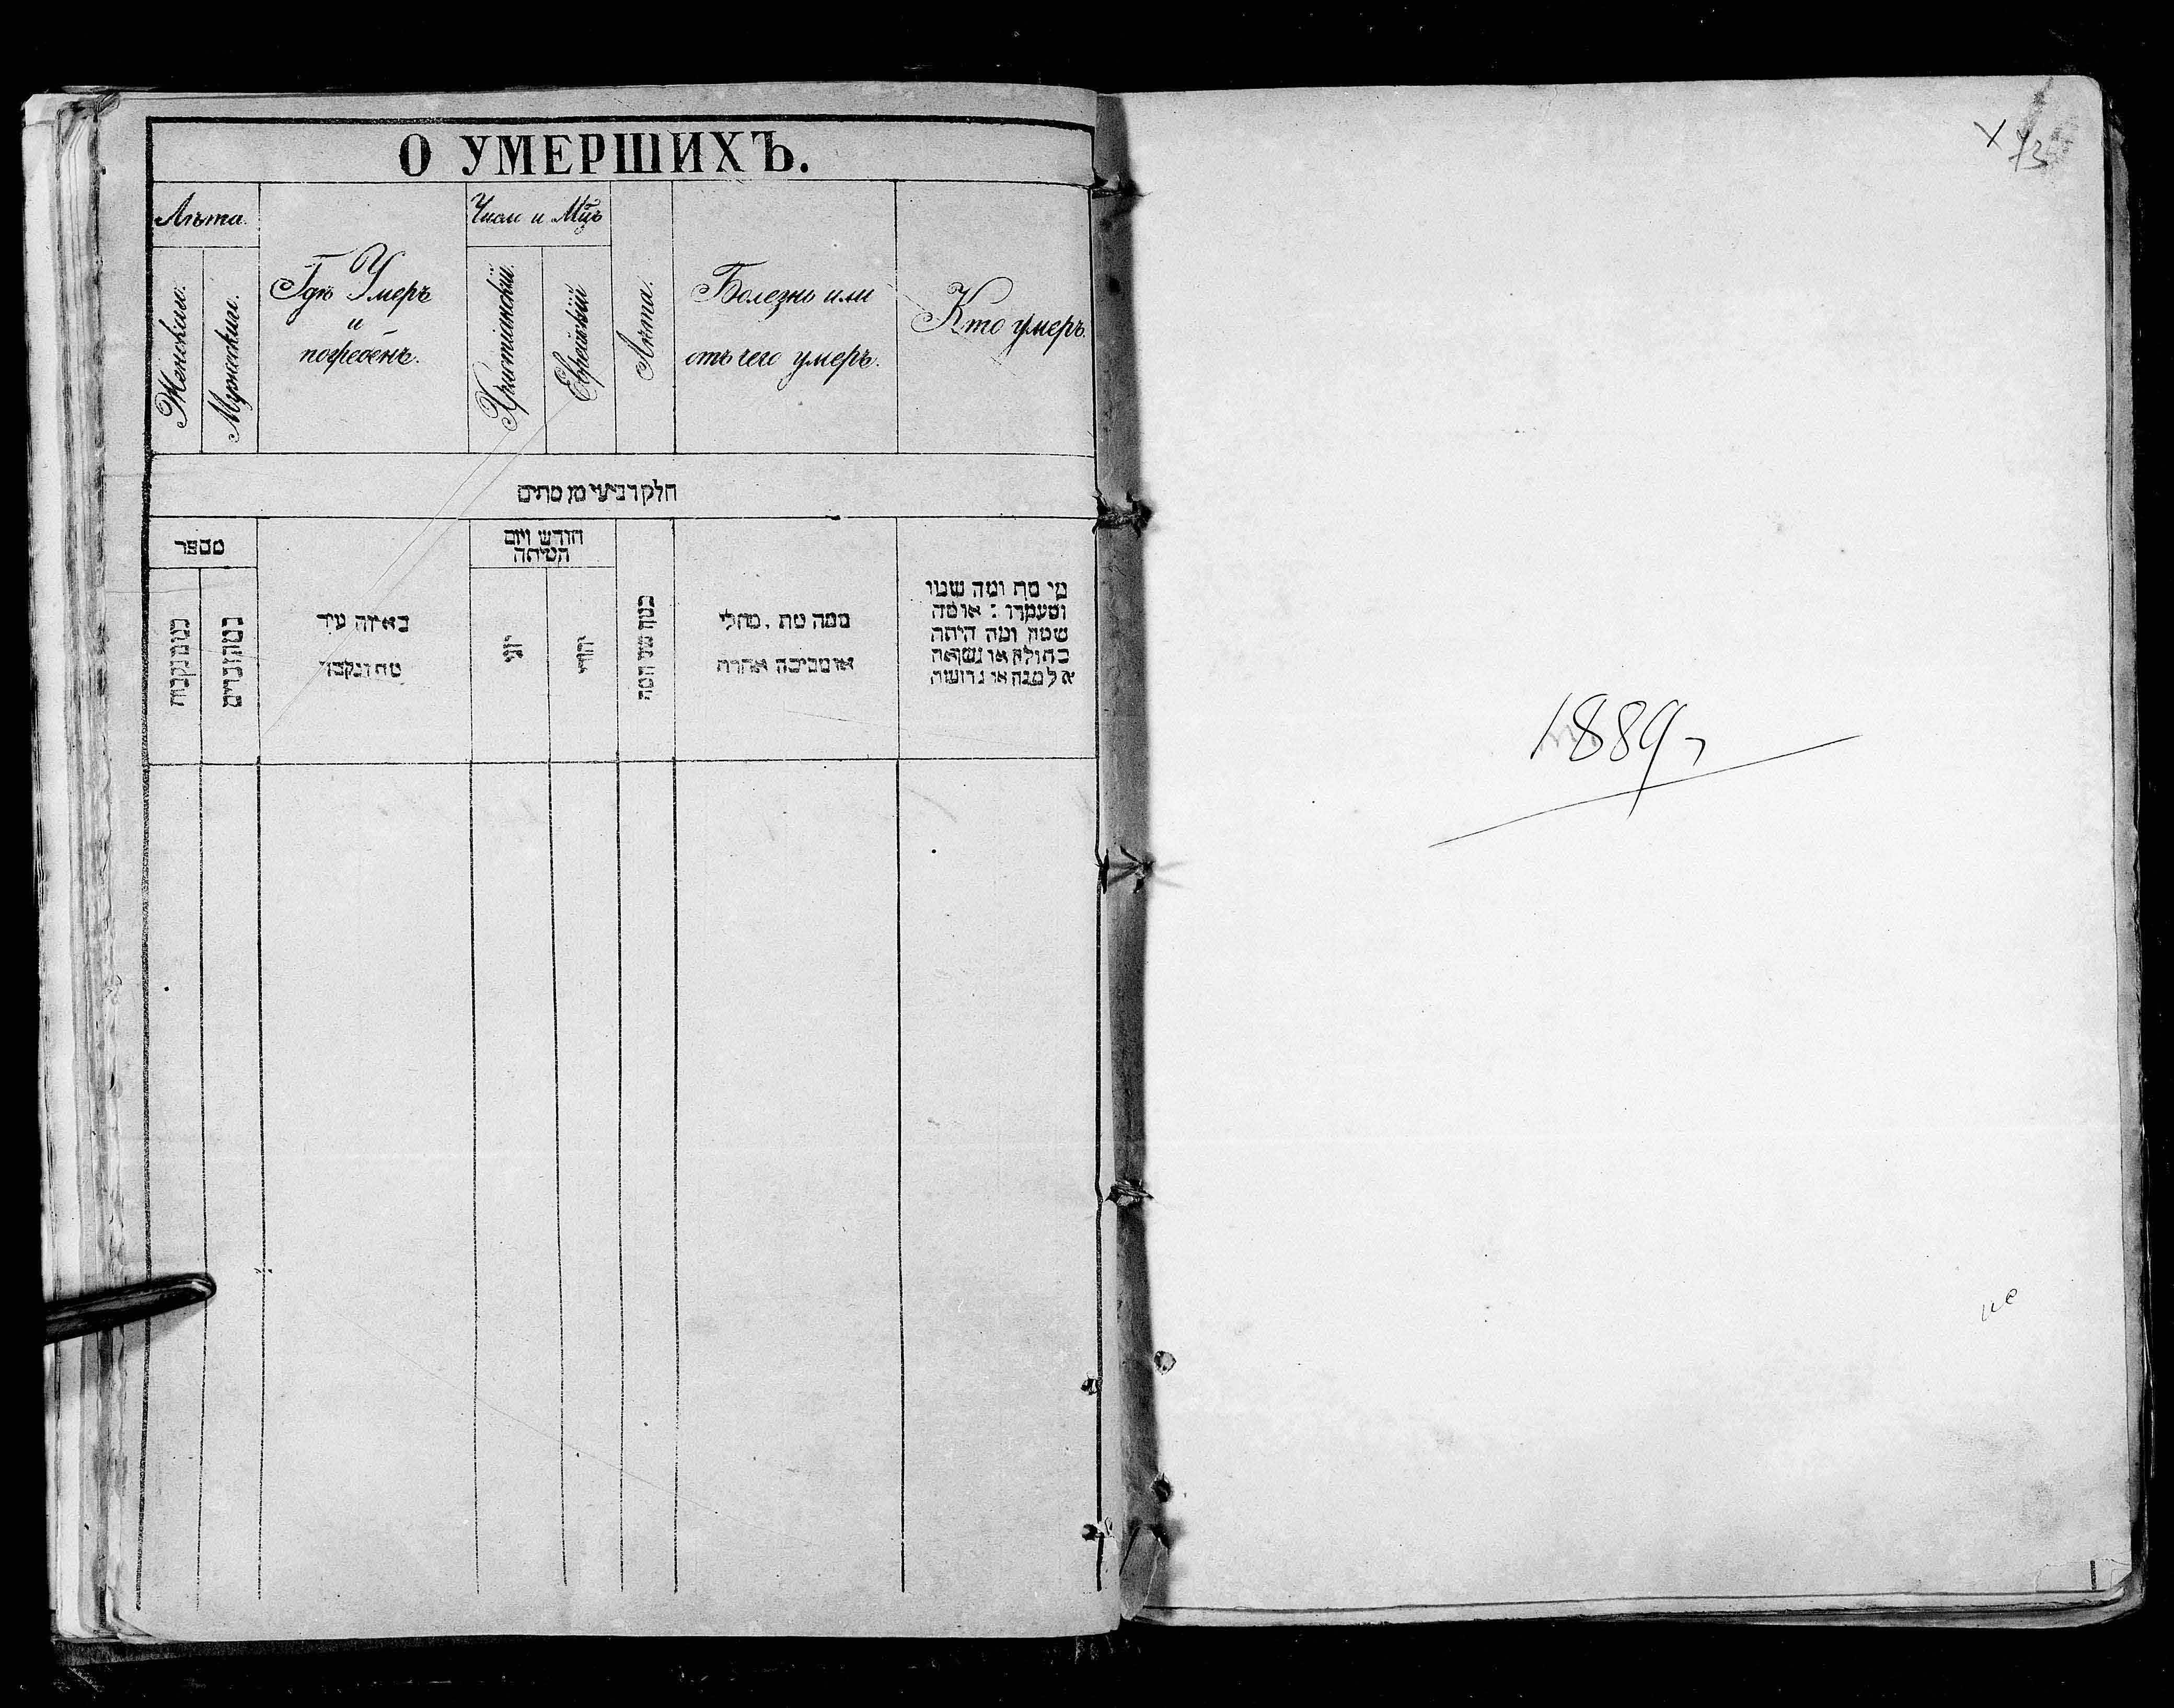 О УМЕРШИХЪ.
Лѣта.
Женскаго.
Мужескаго.
Гдѣ Умеръ
и
погребенъ.
Число и Мцъ
Христіанскій.
Еврейскій
Лѣта.
Болезнь или
отъ чего умеръ.
Кто умеръ.
חלק רביעי מן מתים
מספר
באיזה עיר
מת ונקבר
חודש ויום
המיתה
יוני
יהודי
ממה מת, מחלי
או מסיבה אחרת
מי מת ומה שמו
ומעמדו : או מה
שמה ומה היתה
בתולה או נשואה
אלמנה או גרושה
X 73
1889 г